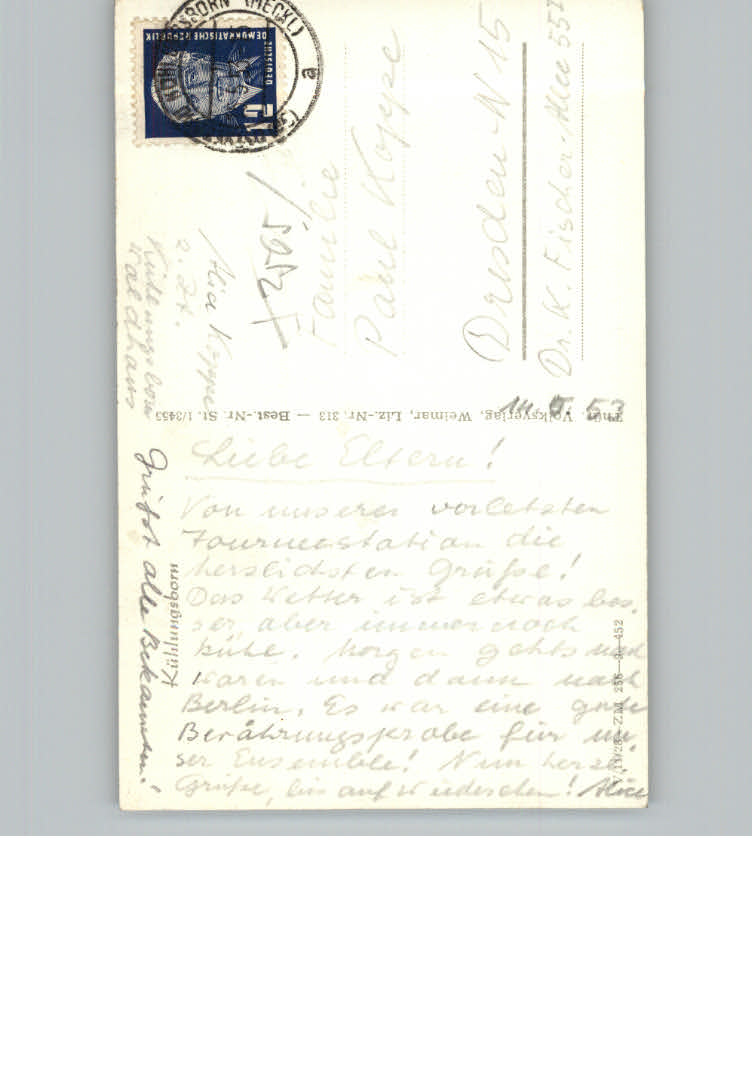 Liebe Eltern!
Von unserer vorletzten
Tourneestation die
herzlichsten Grüße!
Das Wetter ist etwas bes.
ser, aber immer noch
kühl. Morgen gehts nach
Waren und dann nach
Berlin. Es war eine gute
Bewährungsprobe für un
ser Ensemble! Nun herzl.
Grüße, bis auf Wiedersehen! Alice
Grüßt alle Bekannten!
Kühlungsborn
V/11/28 — Z.M. 256—9—452
Thür. Volksverlag, Weimar, Liz.-Nr. 313 — Best.-Nr. St. 1/3453
14. 5. 53
Koppe
z. Zt.
Kühlungsborn
Waldhaus
Familie
Paul Koppe
Dresden-N 15
Dr. K. Fischer-Allee 557
DEUTSCHE
DEMOKRATISCHE REPUBLIK
12
SBORN (MECKL)
a